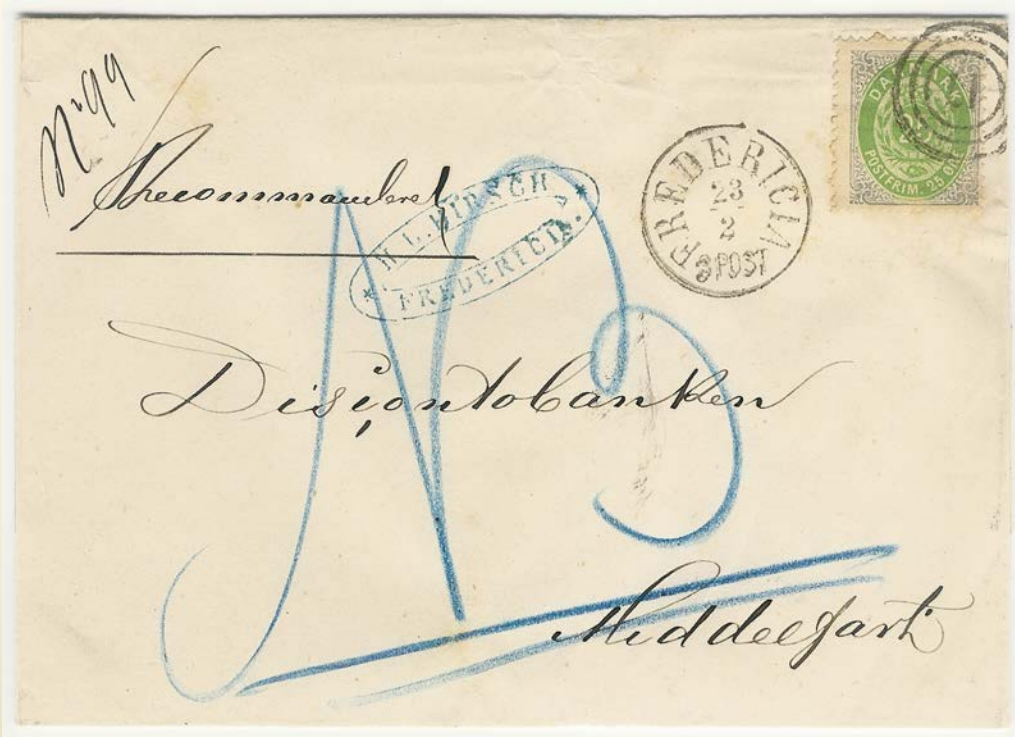 No 99
Recommanderet
N. L. HIRSCH
FREDERICIA.
FREDERICIA
23
2
3 POST
DANMARK
POSTFRIM. 25 ØRE
1
NB
Discontobanken
Middelfart